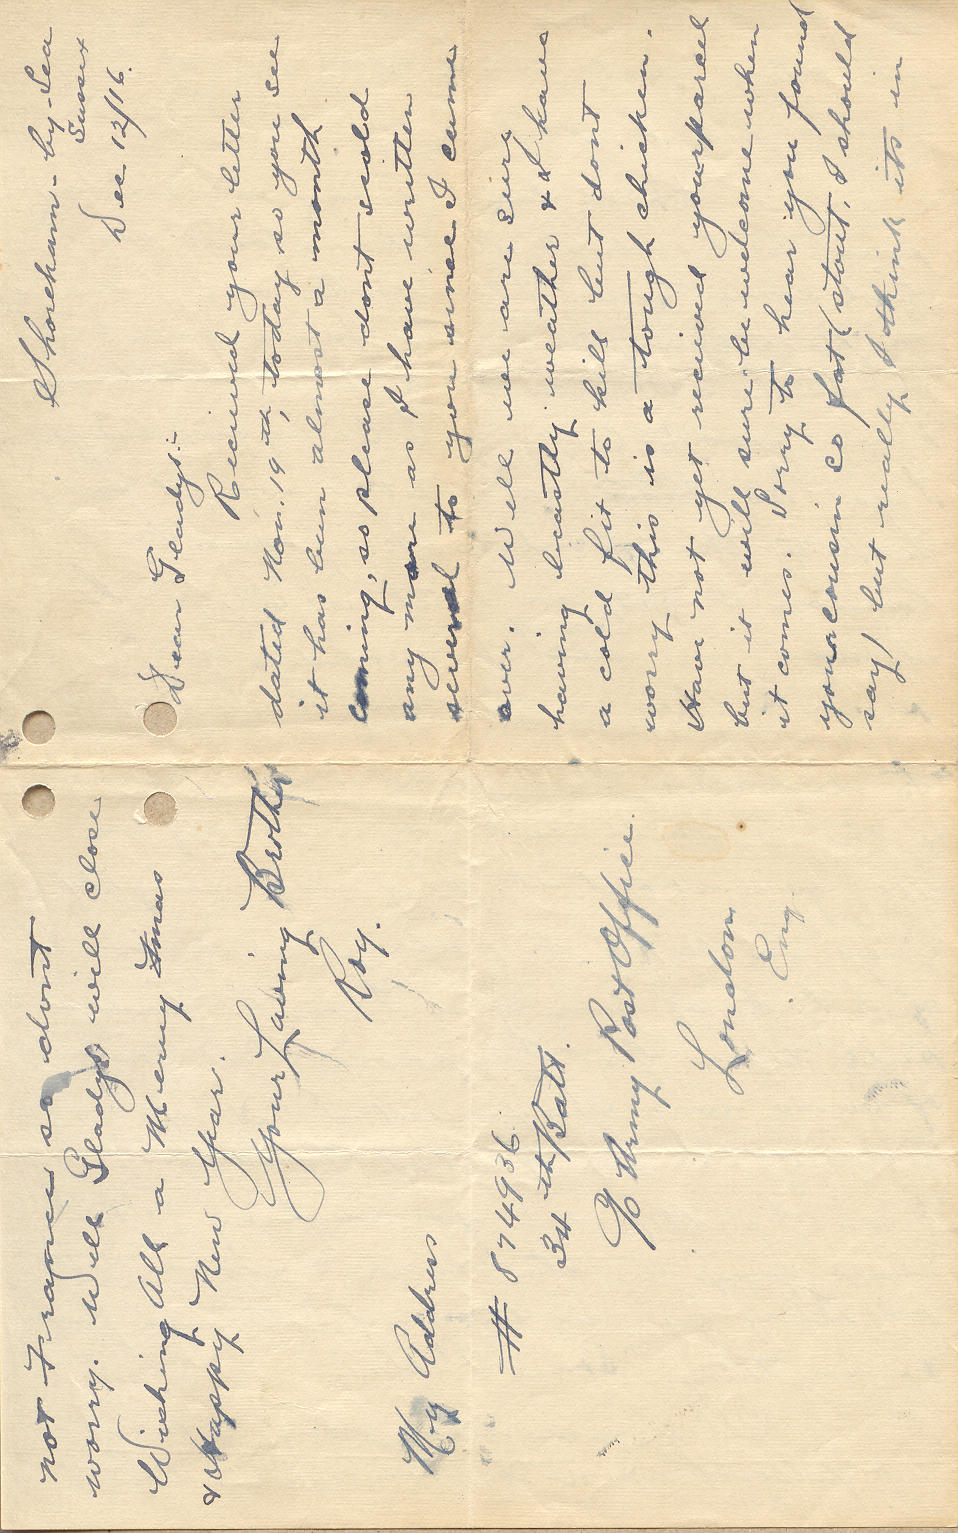 Shoreham-by-Sea
Sussex
Dec 12/16.
Dear Gladys:-
Received your letter
dated Nov. 19th, today so you see
it has been almost a month
coming, so please dont scold
any more as I have written
several to you since I came
over. Well we are sure
having beastly weather & I have
a cold fit to kill but dont
worry this is a tough chicken.
Have not yet received your parcel
but it will sure be welcome when
it comes. Sorry to hear you found
your cousin so fat (stout, I should
say) but really I think its in
not France so dont
worry. Well Gladys will close
Wishing All a Merry Xmas
& Happy New Year.
Your Loving Brother
Roy.
My Address
# 874936
34th Batt.
c/o Army Post Office.
London
Eng.